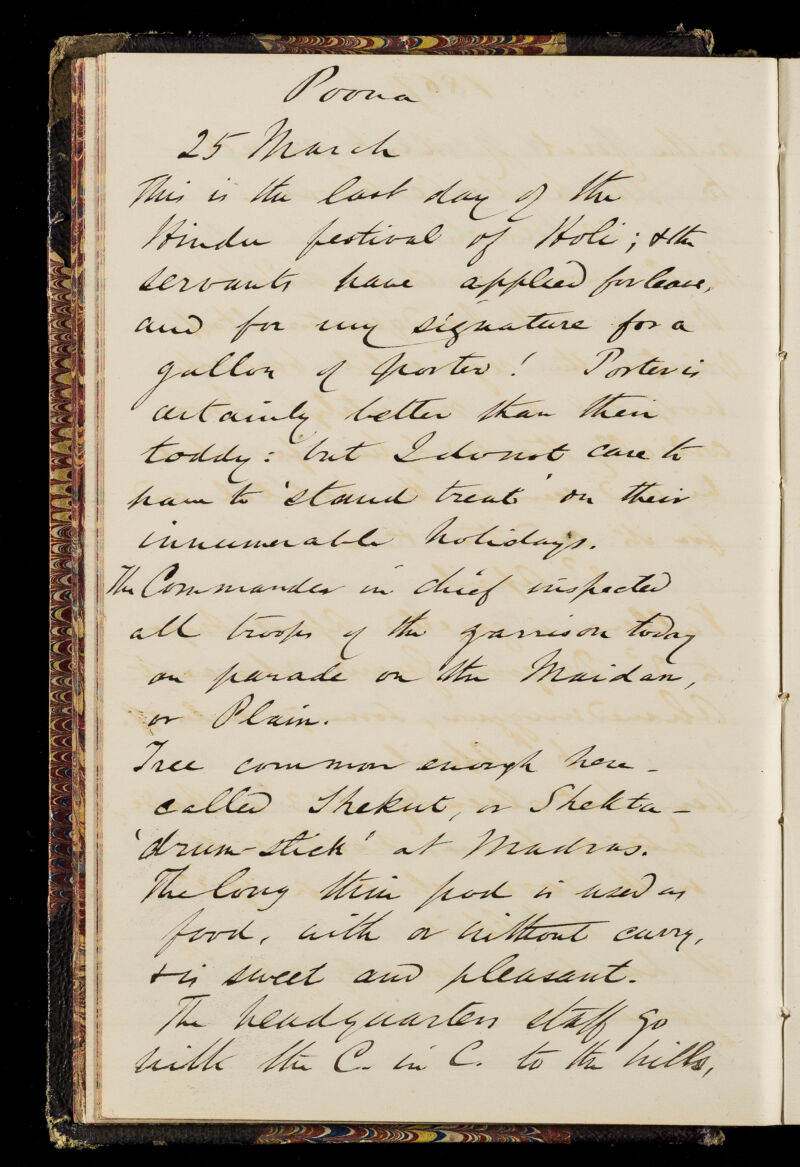 Poona
25 March
This is the last day of the
Hindu festival of Holi; & the
servants have applied for leave,
and for my signature for a
gallon of porter! Porter is
certainly better than their
toddy: but I do not care to
have to 'stand treat' on their
innumerable holidays.
The Commander in chief inspected
all troops of the garrison today
on parade on the Maidan,
or Plain.
Tree common enough here -
called Shekut, or Shekta -
'drum-stick' at Madras.
The long thin pod is used as
food, with or without curry,
& is sweet and pleasant.
The headquarters staff go
with the C. in C. to the hills,